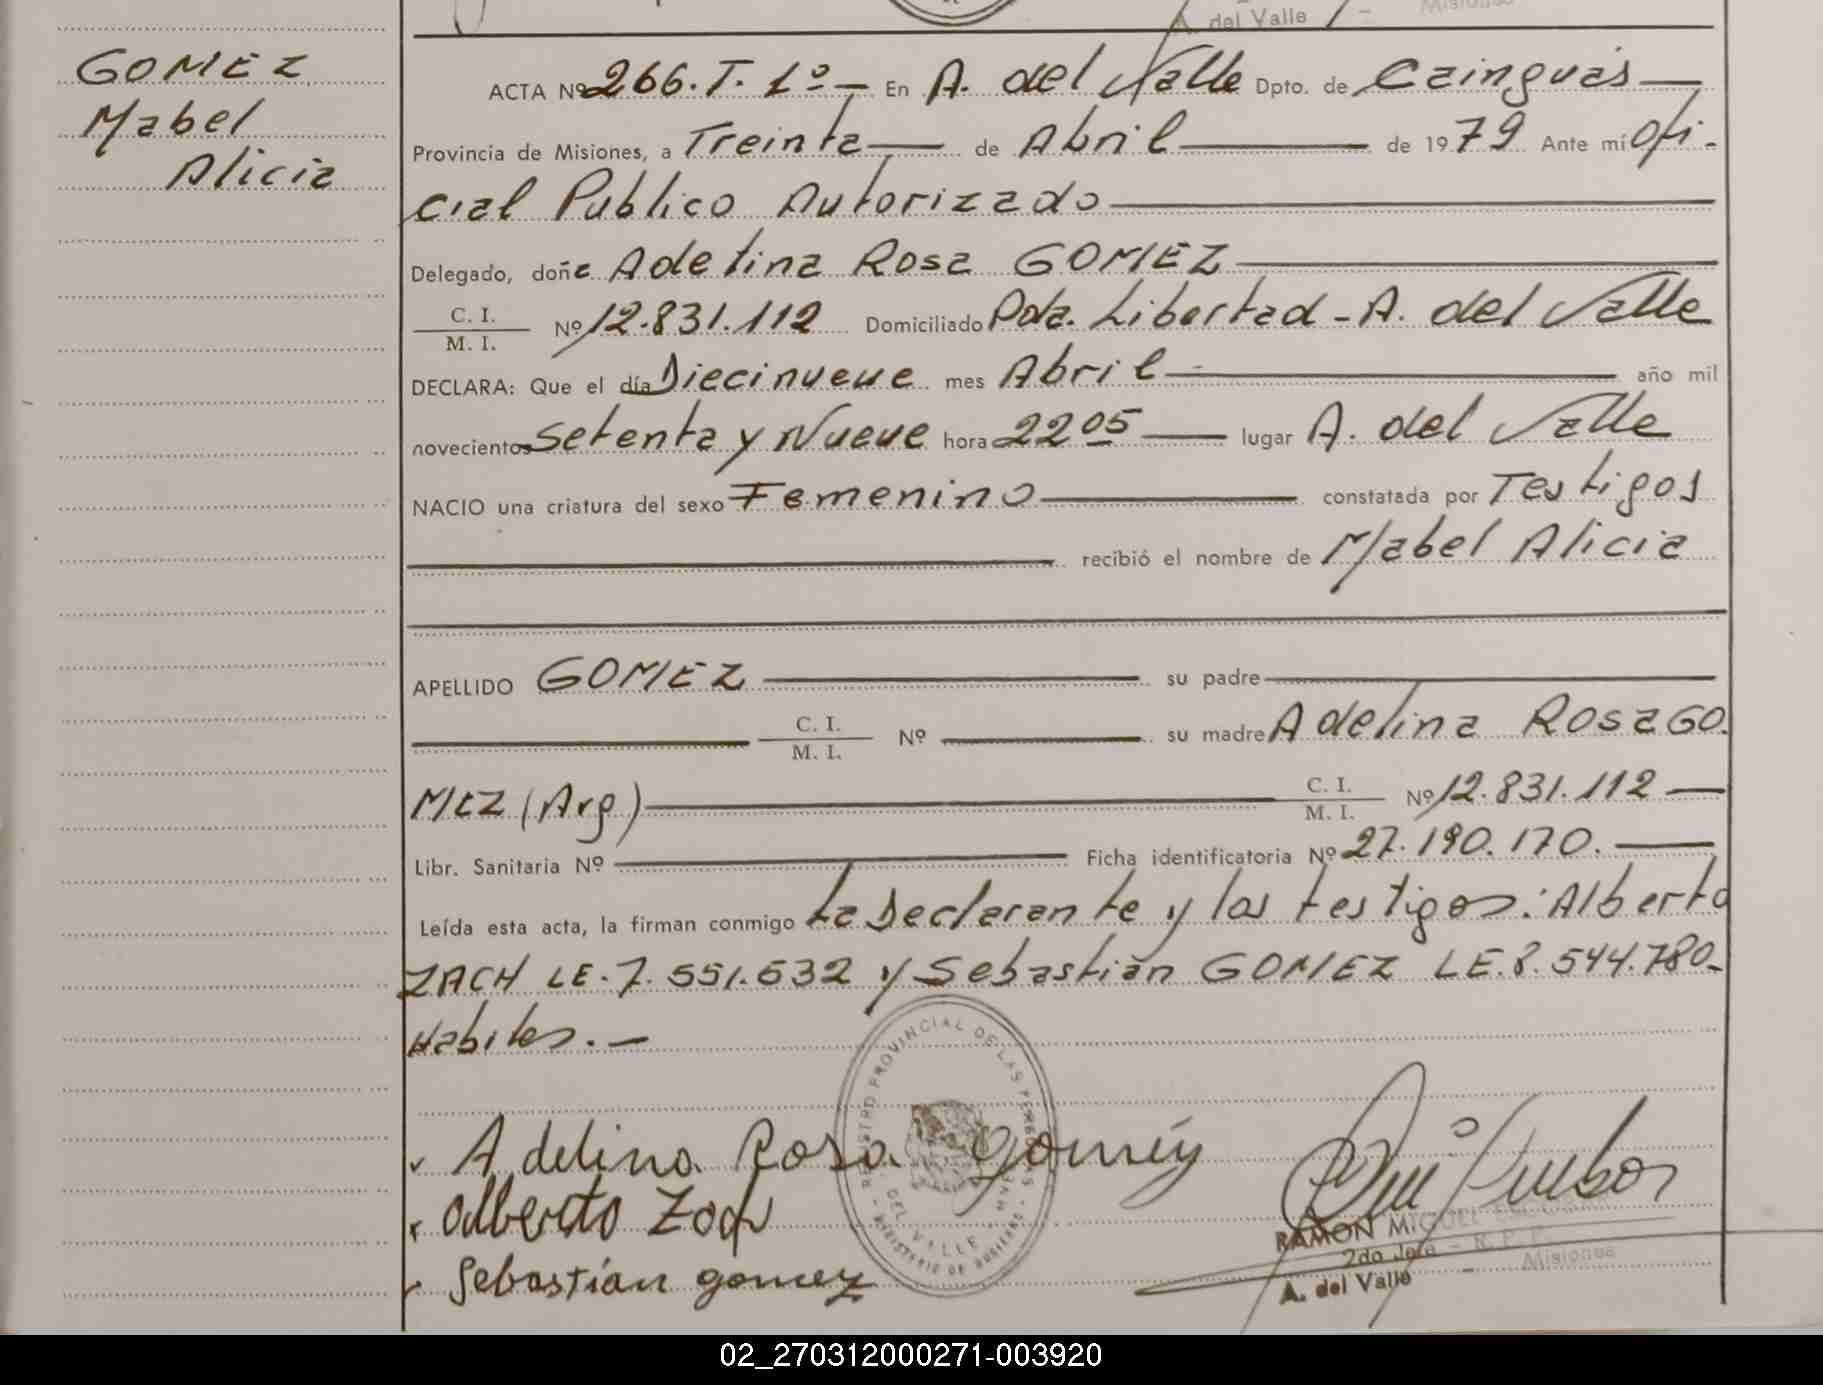 A. del Valle - Misiones
GOMEZ
Mabel
Alicia
ACTA Nº 266. T. 1º - En A. del Valle Dpto. de Cainguás
Provincia de Misiones, a Treinta de Abril de 1979 Ante mí Ofi-
cial Publico Autorizado
Delegado, doña Adelina Rosa GOMEZ
C. I.
M. I. Nº 12.831.112 Domiciliado Pda. Libertad - A. del Valle
DECLARA: Que el día Diecinueve mes Abril año mil
novecientos Setenta y Nueve hora 22 05 lugar A. del Valle
NACIO una criatura del sexo Femenino constatada por Testigos
recibió el nombre de Mabel Alicia
APELLIDO GOMEZ su padre
C. I.
M. I. Nº su madre Adelina Rosa GO.
MEZ (Arg) C. I.
M. I. Nº 12.831.112
Libr. Sanitaria Nº Ficha identificatoria Nº 27.190.170.
Leída esta acta, la firman conmigo La Declarante y los testigos: Alberto
ZACH LE. 7.551.632 y Sebastián GOMEZ LE. 8.544.780-
Habiles. -
REGISTRO PROVINCIAL DE LAS PERSONAS
DEL VALLE
MINISTERIO DE GOBIERNO
Adelina Rosa Gomez
Alberto Zach
Sebastián gomez
RAMON MIGUEL
2do Jefe - R. P. P.
A. del Valle - Misiones
02_270312000271-003920